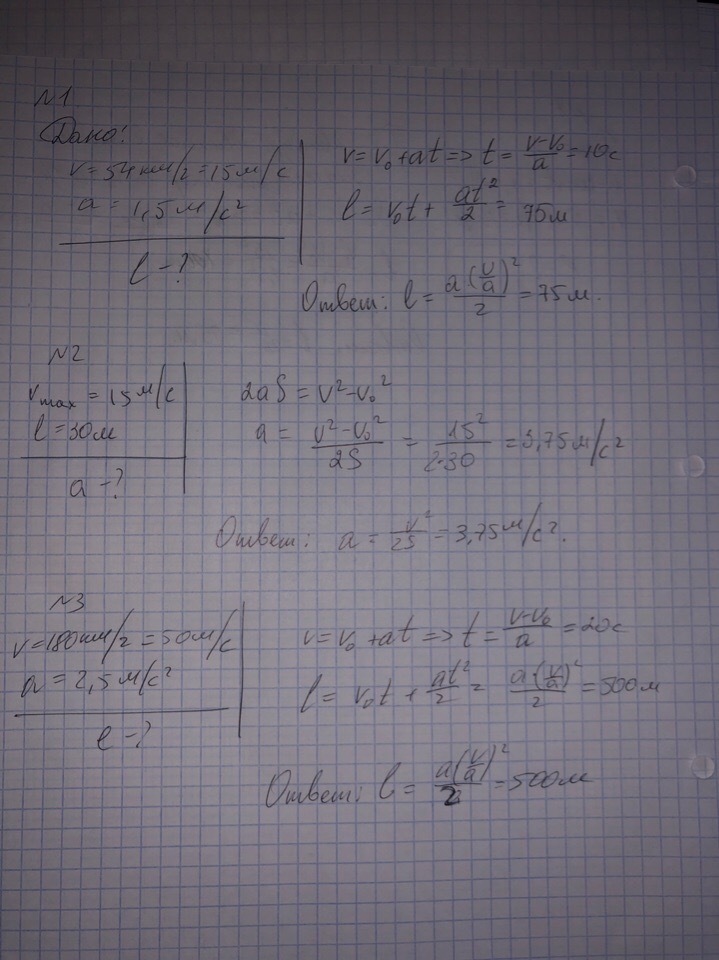 №1
Дано:
v = 54 км/г = 15 м/с
a = 1,5 м/с²
l - ?
v = v₀ + at => t = (v-v₀)/a = 10с
l = v₀t + at²/2 = 75м
Ответ: l = a(v/a)²/2 = 75м.
№2
vmax = 15 м/с
l = 30м
a - ?
2aS = v² - v₀²
a = (v² - v₀²)/2S = 15²/2·30 = 3,75 м/с²
Ответ: a = v²/2S = 3,75 м/с².
№3
v = 180 км/г = 50 м/с
a = 2,5 м/с²
l - ?
v = v₀ + at => t = (v-v₀)/a = 20с
l = v₀t + at²/2 = a·(v/a)²/2 = 500м
Ответ: l = a(v/a)²/2 = 500м